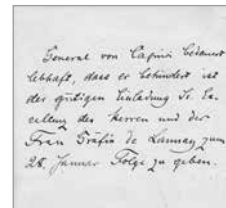 General von Caprivi bedauert
lebhaft, dass er behindert ist
der gütigen Einladung Sr. Ex-
cellenz des Herren und der
Frau Gräfin de Launay zum
28. Januar Folge zu geben.